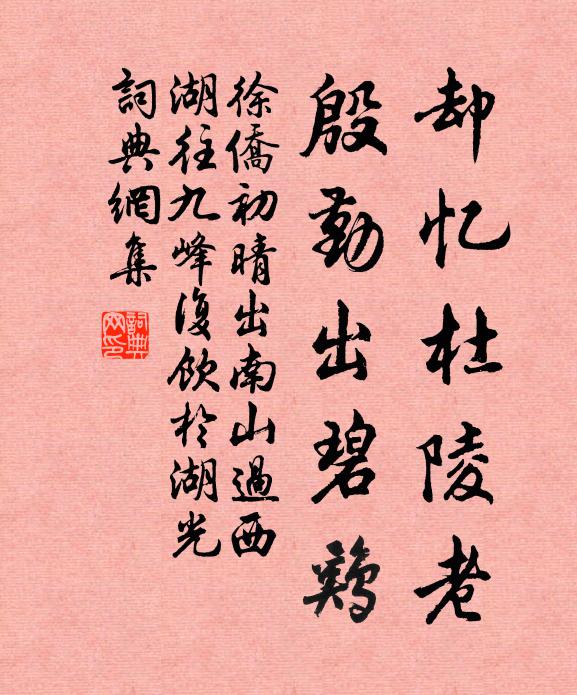 却忆杜陵老
殷勤出碧鸡
徐僑初晴出南山過西
湖往九峰復飲於湖光
詞典網集
詞典網印